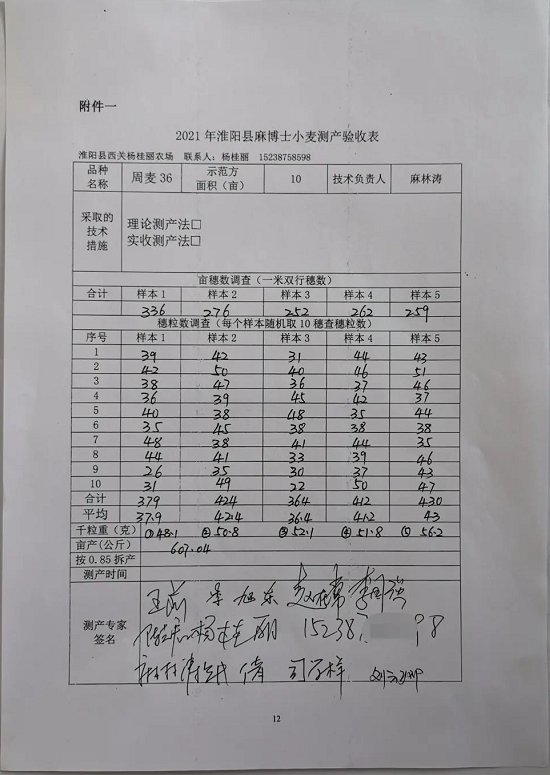 附件一
2021年淮阳县麻博士小麦测产验收表
淮阳县西关杨桂丽农场 联系人：杨桂丽 15238758598
品种名称 周麦36 示范方面积（亩） 10 技术负责人 麻林涛
采取的技术措施 理论测产法□
实收测产法□
亩穗数调查（一米双行穗数）
合计 样本1 样本2 样本3 样本4 样本5
336 276 252 262 259
穗粒数调查（每个样本随机取10穗查穗粒数）
序号 样本1 样本2 样本3 样本4 样本5
1 39 42 31 44 43
2 42 50 40 46 51
3 38 47 36 37 46
4 36 39 45 42 37
5 40 38 48 35 44
6 35 45 38 38 38
7 48 38 41 44 35
8 44 41 33 39 46
9 26 35 30 37 43
10 31 49 22 50 47
合计 379 424 364 412 430
平均 37.9 42.4 36.4 41.2 43
千粒重（克） ①48.1 ②50.8 ③52.1 ④51.8 ⑤56.2
亩产(公斤) 607.04
按0.85拆产
测产时间
测产专家签名 李旭东
杨桂丽 15238 8
12